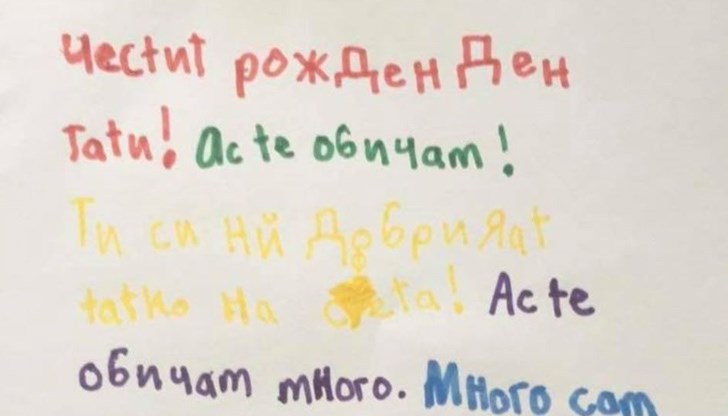 Честит рожден Ден
Тати! Ас те обичам!
Ти си нй Добрияат
татко на света!Ас те
обичам много. Много сам